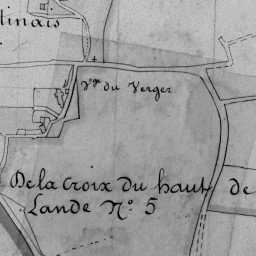 tinais
du Verger
De la Croix du haut de
Lande N.o 5